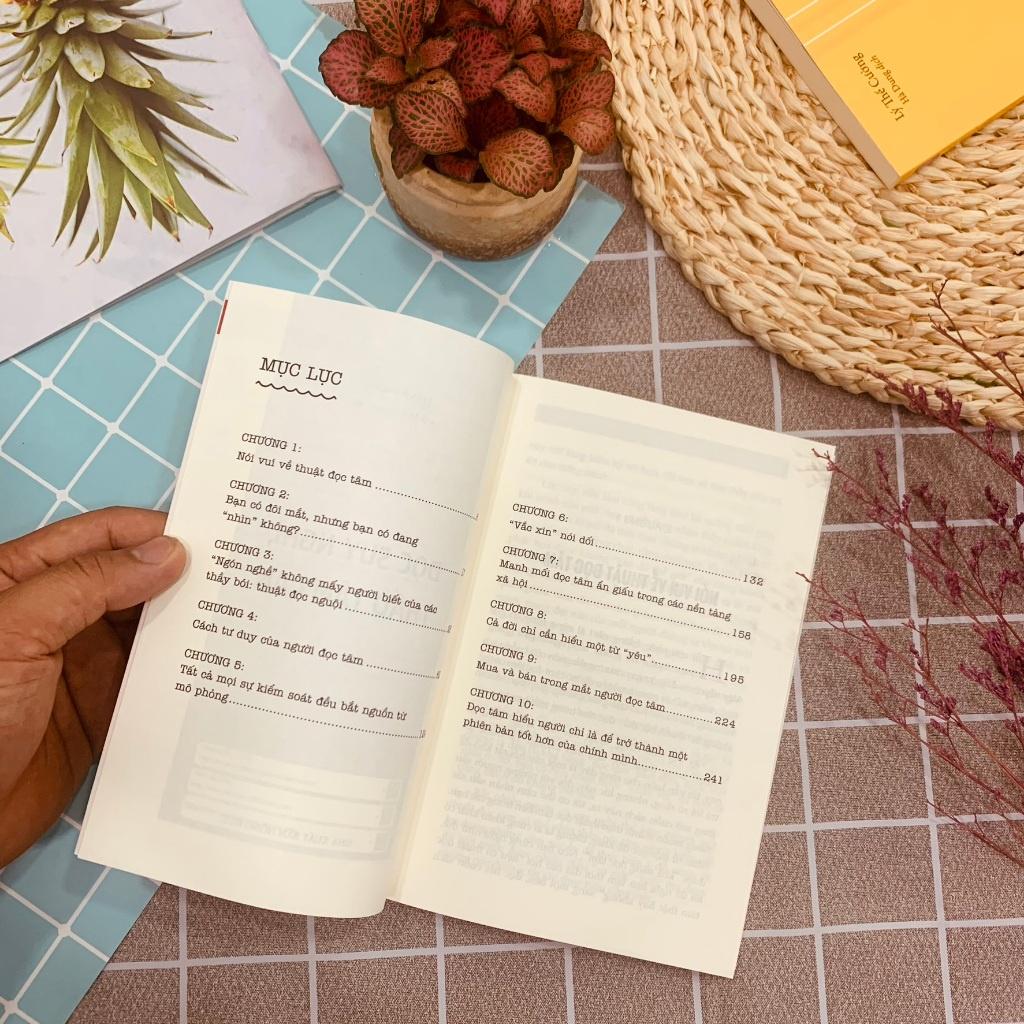 Lý Thế Cường
Hà Dung dịch
MỤC LỤC
CHƯƠNG 1:
Nói vui về thuật đọc tâm
CHƯƠNG 2:
Bạn có đôi mắt, nhưng bạn có đang
“nhìn” không?
CHƯƠNG 3:
“Ngón nghề” không mấy người biết của các
thầy bói: thuật đọc nguội
CHƯƠNG 4:
Cách tư duy của người đọc tâm
CHƯƠNG 5:
Tất cả mọi sự kiểm soát đều bắt nguồn từ
mô phỏng
CHƯƠNG 6:
“Vắc xin” nói dối 132
CHƯƠNG 7:
Manh mối đọc tâm ẩn giấu trong các nền tảng
xã hội 158
CHƯƠNG 8:
Cả đời chỉ cần hiểu một từ “yêu” 195
CHƯƠNG 9:
Mua và bán trong mắt người đọc tâm 224
CHƯƠNG 10:
Đọc tâm hiểu người chỉ là để trở thành một
phiên bản tốt hơn của chính mình 241